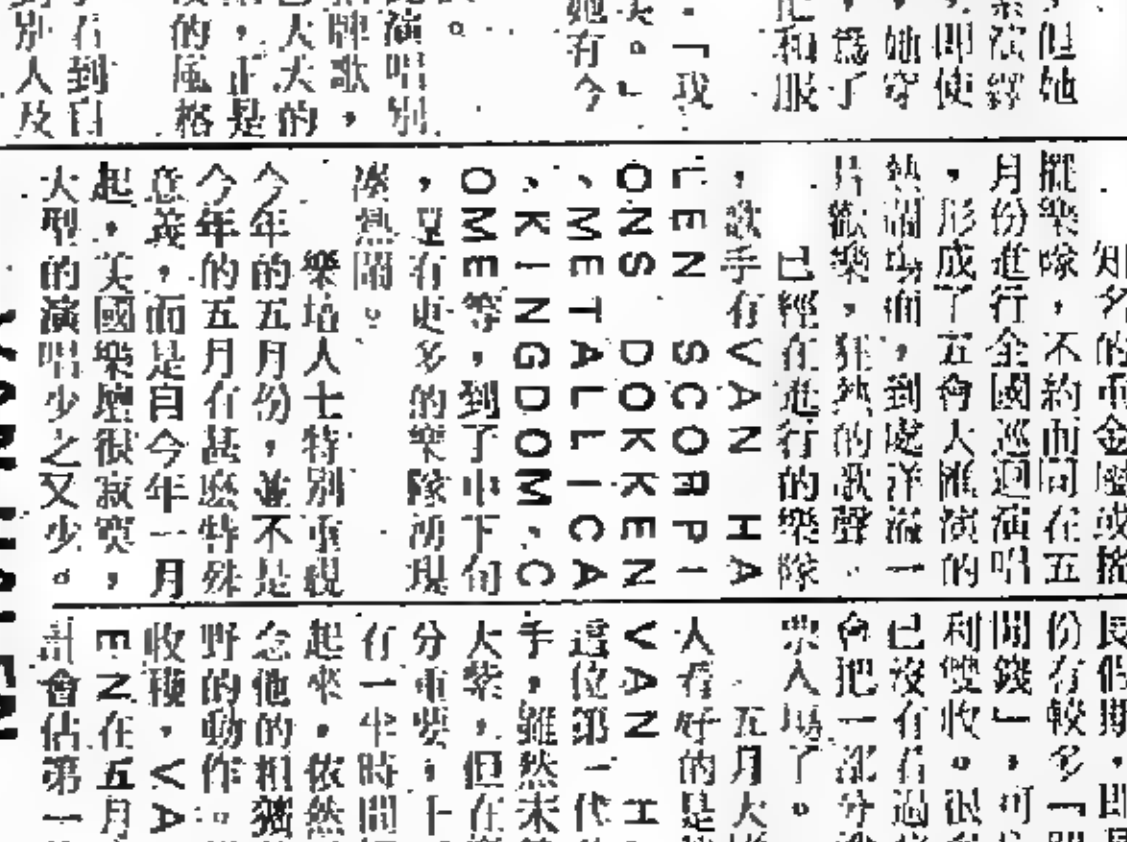 但她
演繹
,即使
,她穿
,爲了
和服
「我
。」
她有今
。
演唱別
牌歌,
大大的
,正是
的風格
看到自
別人及
知名的重金屬或搖
擺樂隊,不約而同在五
月份進行全國巡迴演唱
,形成了五會大匯演的
熱鬧場面,到處洋溢一
片歡樂,狂熱的歌聲。
已經在進行的樂隊
,歌手有VAN HA
LEN SCORPI
ONS DOKKEN
、METALLICA
、KINGDOM、C
OME等,到了中下旬
,更有更多的樂隊湧現
湊熱鬧。
樂壇人士特別重視
今年的五月份,並不是
今年的五月在甚麽特殊
意義,而是自今年一月
起,美國樂壇很寂寞,
大型的演唱少之又少。
長假期,即
份有較多「
閒錢」,可
利雙收。很
已沒有看過
會把一部分
票入場了。
五月大
人看好的是
VAN H
這位第一代
手,雖然未
大紫,但在
分重要,十
有一半時間
起來,依然
念他的粗獷
野的動作。
收穫,VA
EN在五月
計會佔第一